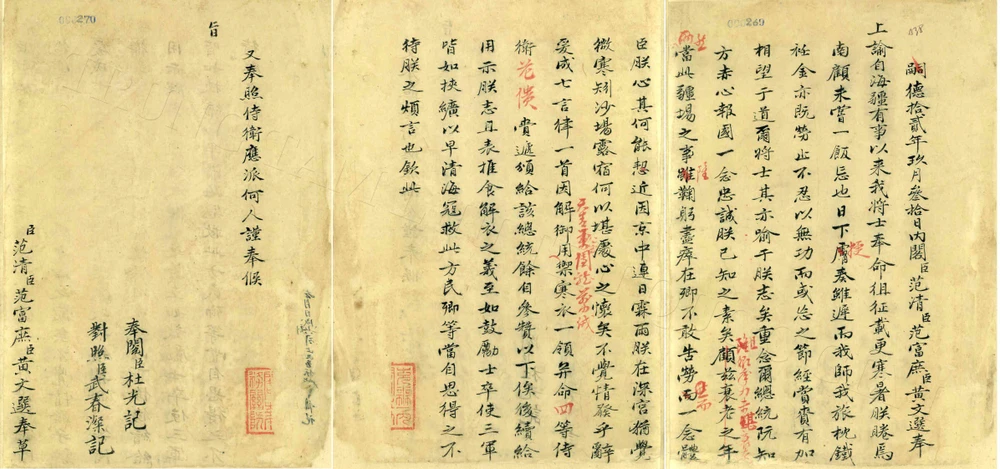 000269
038
嗣德拾貳年玖月叄拾日內閣臣范清臣范富庶臣黃文選奉
上諭自海疆有事以來我將士奉命徂征載更寒暑朕睠焉
南顧未嘗一飯忘也日下奏雖遲而我師我旅枕鐵
衽金亦既勞止不忍以無功而或恝之節經賞賚有加
相望于道爾將士其亦喻于朕志矣重念爾總統阮知
方赤心報國一念忠誠朕已知之素矣顧茲衰老之年
當此疆場之事雖鞠躬盡瘁在卿不敢告勞而一念體
臣朕心其何能恝近因京中連日霖雨朕在深宮猶覺
微寒矧沙場露宿何以堪處心之懷矣不覺情發乎辭
爰成七言律一首因解御用禦寒衣一領并命四等侍
衛花 賫遞頒給該總統餘自參贊以下俟後續給
用示朕志且表推食解衣之義至如鼓勵士卒使三軍
皆如挾纊以早清海寇救此方民卿等當自思得之不
待朕之煩言也欽此
000270
旨
又奉照侍衛應派何人謹奉候
奉閱臣杜光記
對照臣武春深記
臣范清臣范富庶臣黃文選奉草